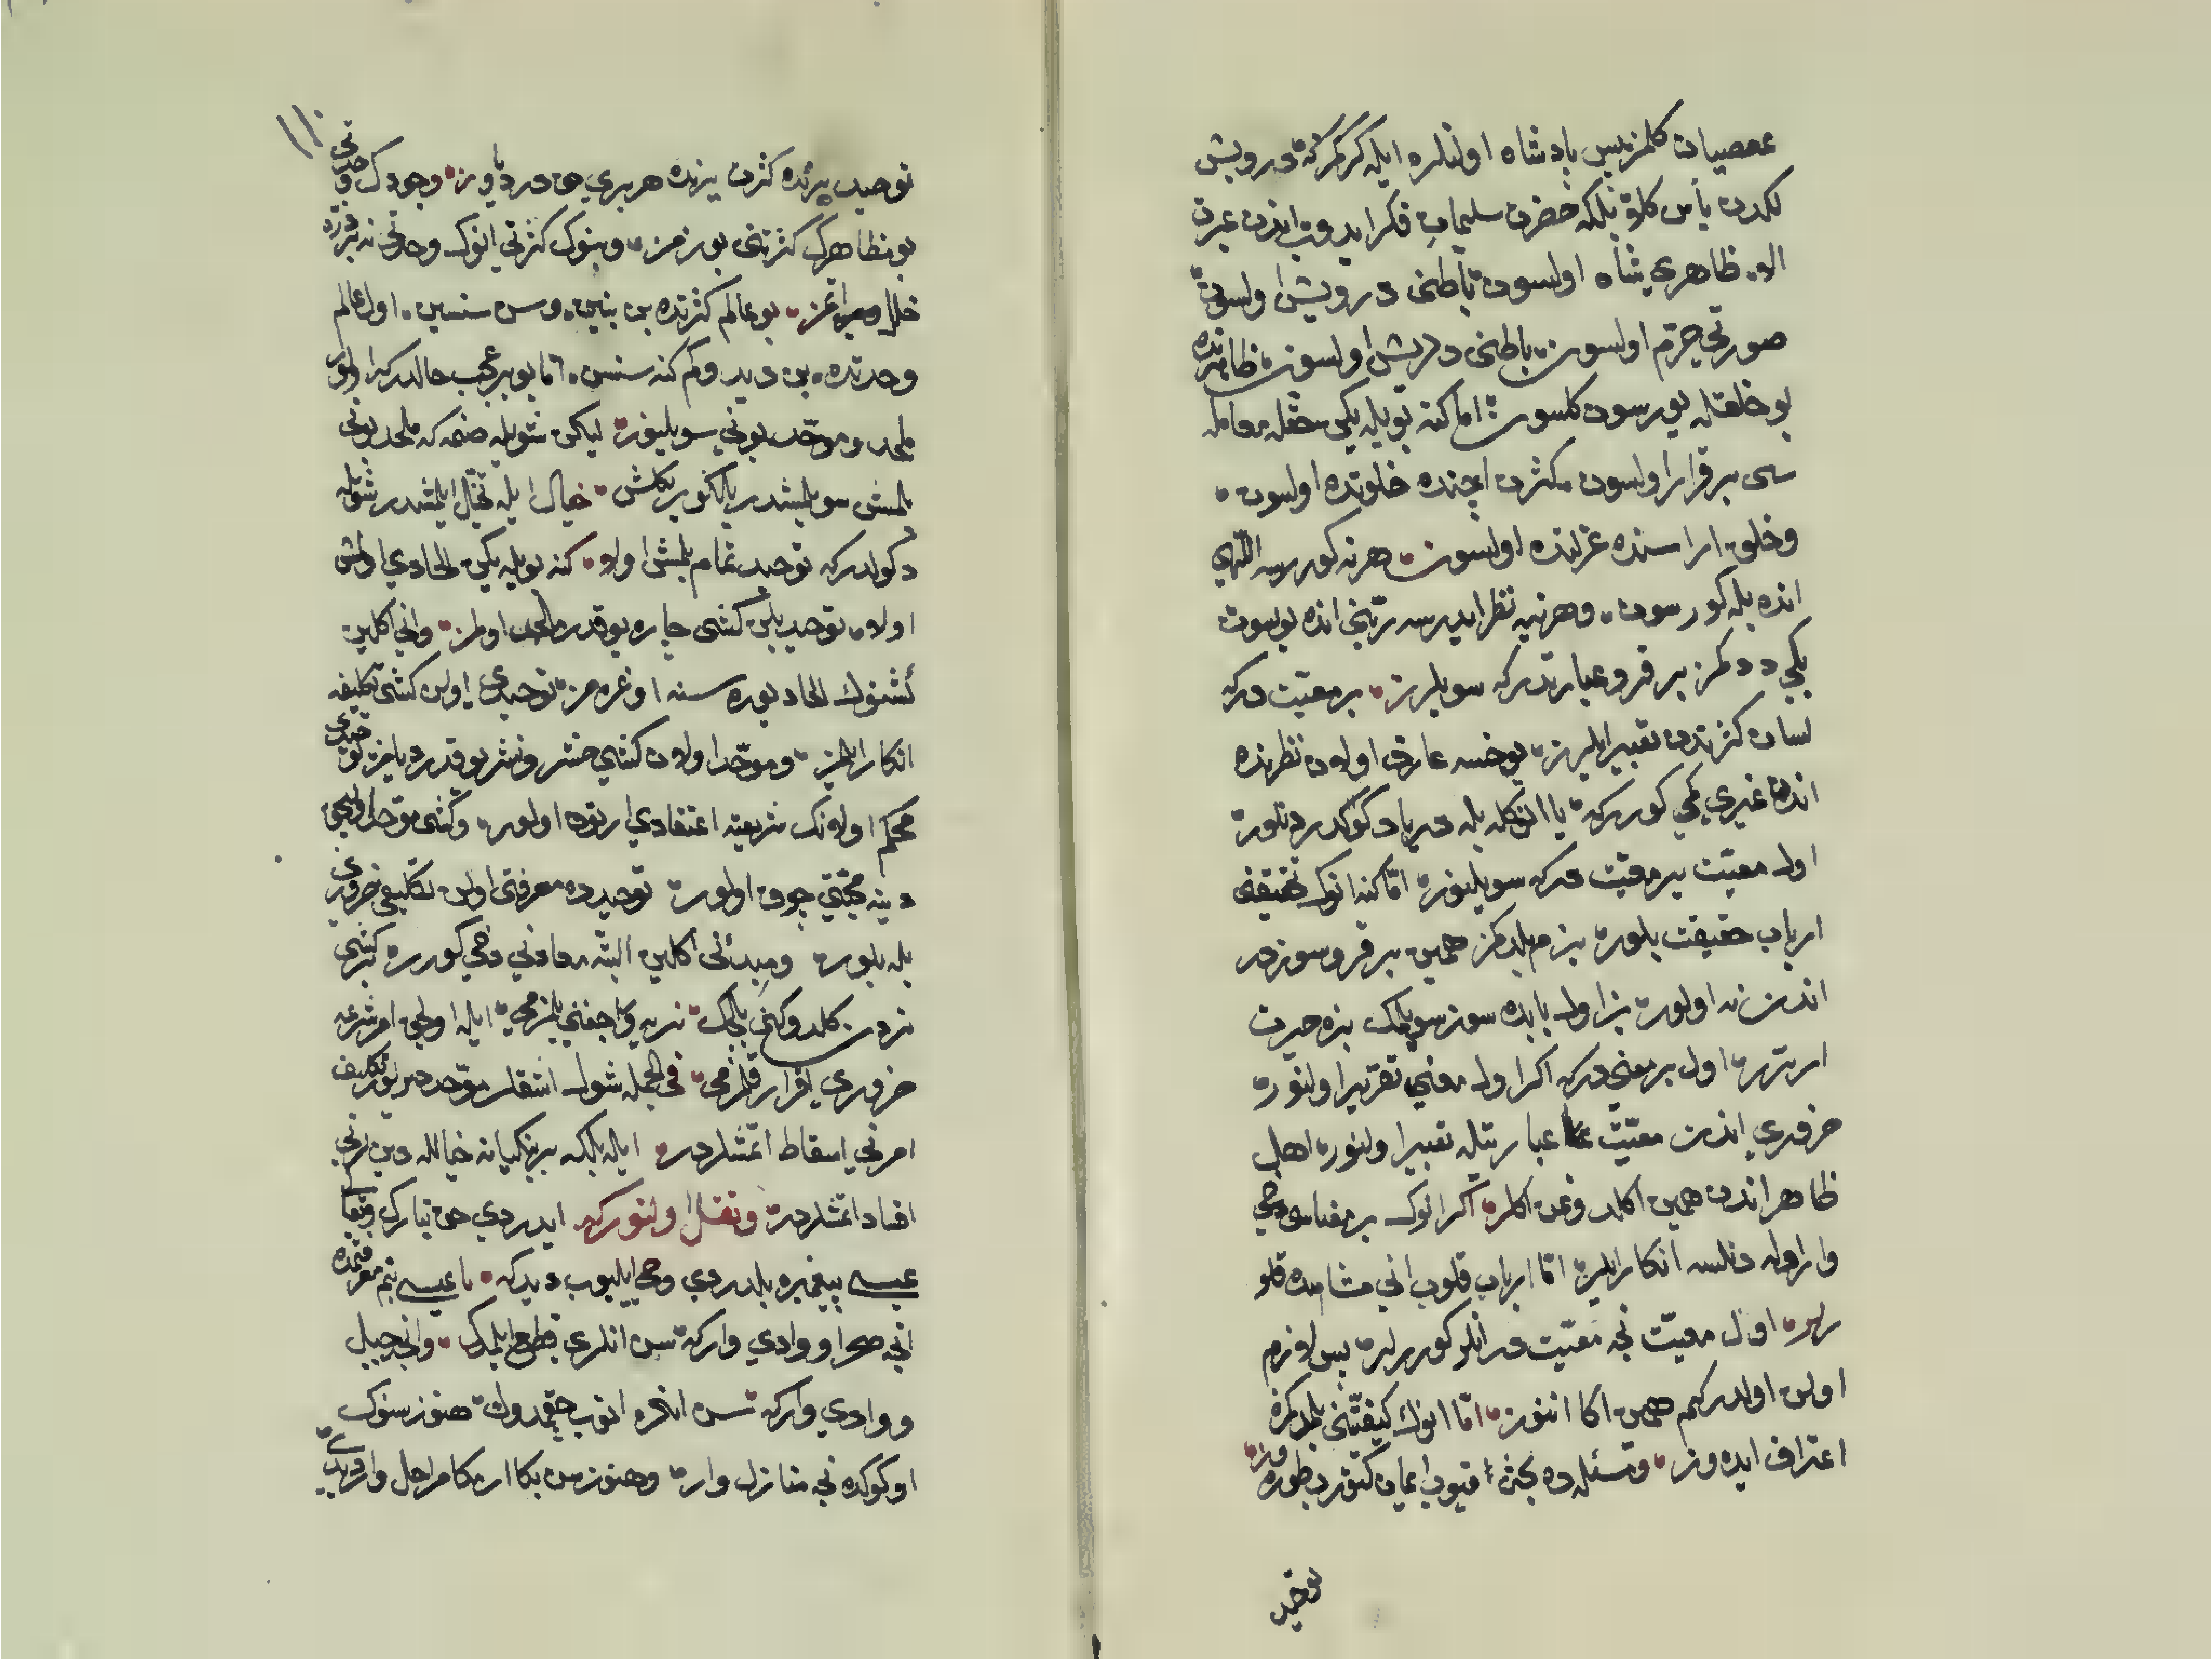 عصيان كلمز پس پادشاه اولنلره ايله كركمركه درويش
لكدن يأس كلمز بلكه حضرت سليمان فكر ايدوب اندن عبرت
اله ظاهرى شاه اولسون باطنى درويش اولسون
صورتى اولسون باطنى درويش اولسون ظاهرنده
بو خلقله يورسون كلسون اما كنه بويله يكن حقله معامله
سى برقرار اولسون كثرت اچنده خلوتده اولسون
وخلق اراسنده عزلتده اولسون هرنه كوررسه اللهى
انده بله كورسون وهرنيه نظر ايدرسه ربنى انده بولسون
بله ددكمز بر قرو عبارتدركه سويلرز بر معيت دركه
لسان كثرتدن تعبير ايلرز يوخسه عارف اولان نظرنده
اندن غيرى كمى كورركه يا انكله بله دريا دكولدر دنلور
اول معيت بر معيت دركه سويلنور اما كنه انوك حقيقتنى
ارباب حقيقت بلور بزم بلدكمز همين بر قرو سوزدر
اندن نه اولور بز اول بابده سوز سويلمك بزه حيرت
ارترر اول بر معنى دركه اكر اول معنى تقرير اولنور
ضرورى اندن معيت عبارتيله تعبير اولنور اهل
ظاهر اندن همين اكلدوغن اكلر اكر انوك بر معناسى دخى
وار اوله دنلسه انكار ايلر اما ارباب قلوب انى مشاهده قلو
رلر اول معيت نجه معيت در انلر كوررلر پس لازم
اولن اولدركم همين اكا اننوز اما انوك كيفيتنى بلمدكمزه
اعتراف ايده وز ومسئله ده بحث قيوب اعيان كتورب طوره وز
توحيد
١١٠
توحيد بزنده كثرت بزنده هر برى حق در ديا وز وجودك وحدتى
بو مظاهرك كثرتنى بوزمز وبونوك كثرتى انوك وحدتنه ذره
خلل ويرمز بو عالم كثرتده بن بنين وسن سنسين اول عالم
وحدتده بن ديد وكم كنه سنسن اما بو بر عجب حالدركه اولور
ملحد وموحد بونى سويلنور ليكن شويله صنمه كه ملحد بونى
بلمش سويلمشدر يالكوز خيال ايله تخيل ايلمشدر شويله
دكولدركه توحيد تمام بلمش اولا كنه بويله يكن الحادى اولمش
اولا توحيد بلن كشى چاره يوقدر ملحد اولمز وانى اكلين
كشنوك الحاد يوره سنه اوغرمز توحيدى اولن كشى تكليفه
انكار ايلمز وموحد اولان كشى حشر ونشر يوقدر ديمز توحيدى
محكم اولانك شريعته اعتقادى ارتوق اولور وكشى موحد اوليجق
دينه محبتى چوق اولور توحيدده معرفتى اولن تكليفى ضرورى
بله بلور ومبدئنى اكلين البته معادنى دخى كورر كشى
نردن كلدوكنى بليجك نريه واجغنى بلمزمى ايله اوليجق امر شرعه
ضرورى اقرار قلمزمى فى الجمله شول اشقلر موحددر ديو تكليف
امرنى اسقاط اتمشلردر ايله بلكه بر بنكيانه خيالله دين لرنى
افساد اتمشلردر ونقل اولنوركه ايدردى حق تبارك وتعالى
عيسى پيغمبره بلدردى وحى ايليوب ديدكه يا عيسى بنم معرفتمده
انجه صحرا ووادى واركه سن انلرى قطع ايلمدك وانجه جبل
ووادى واركه سن انلره انوب چقمدوك هنوز سنوك
اوكوكده نجه منازل وار وهنوز سن بكا ارمكه مراحل وار ديدى